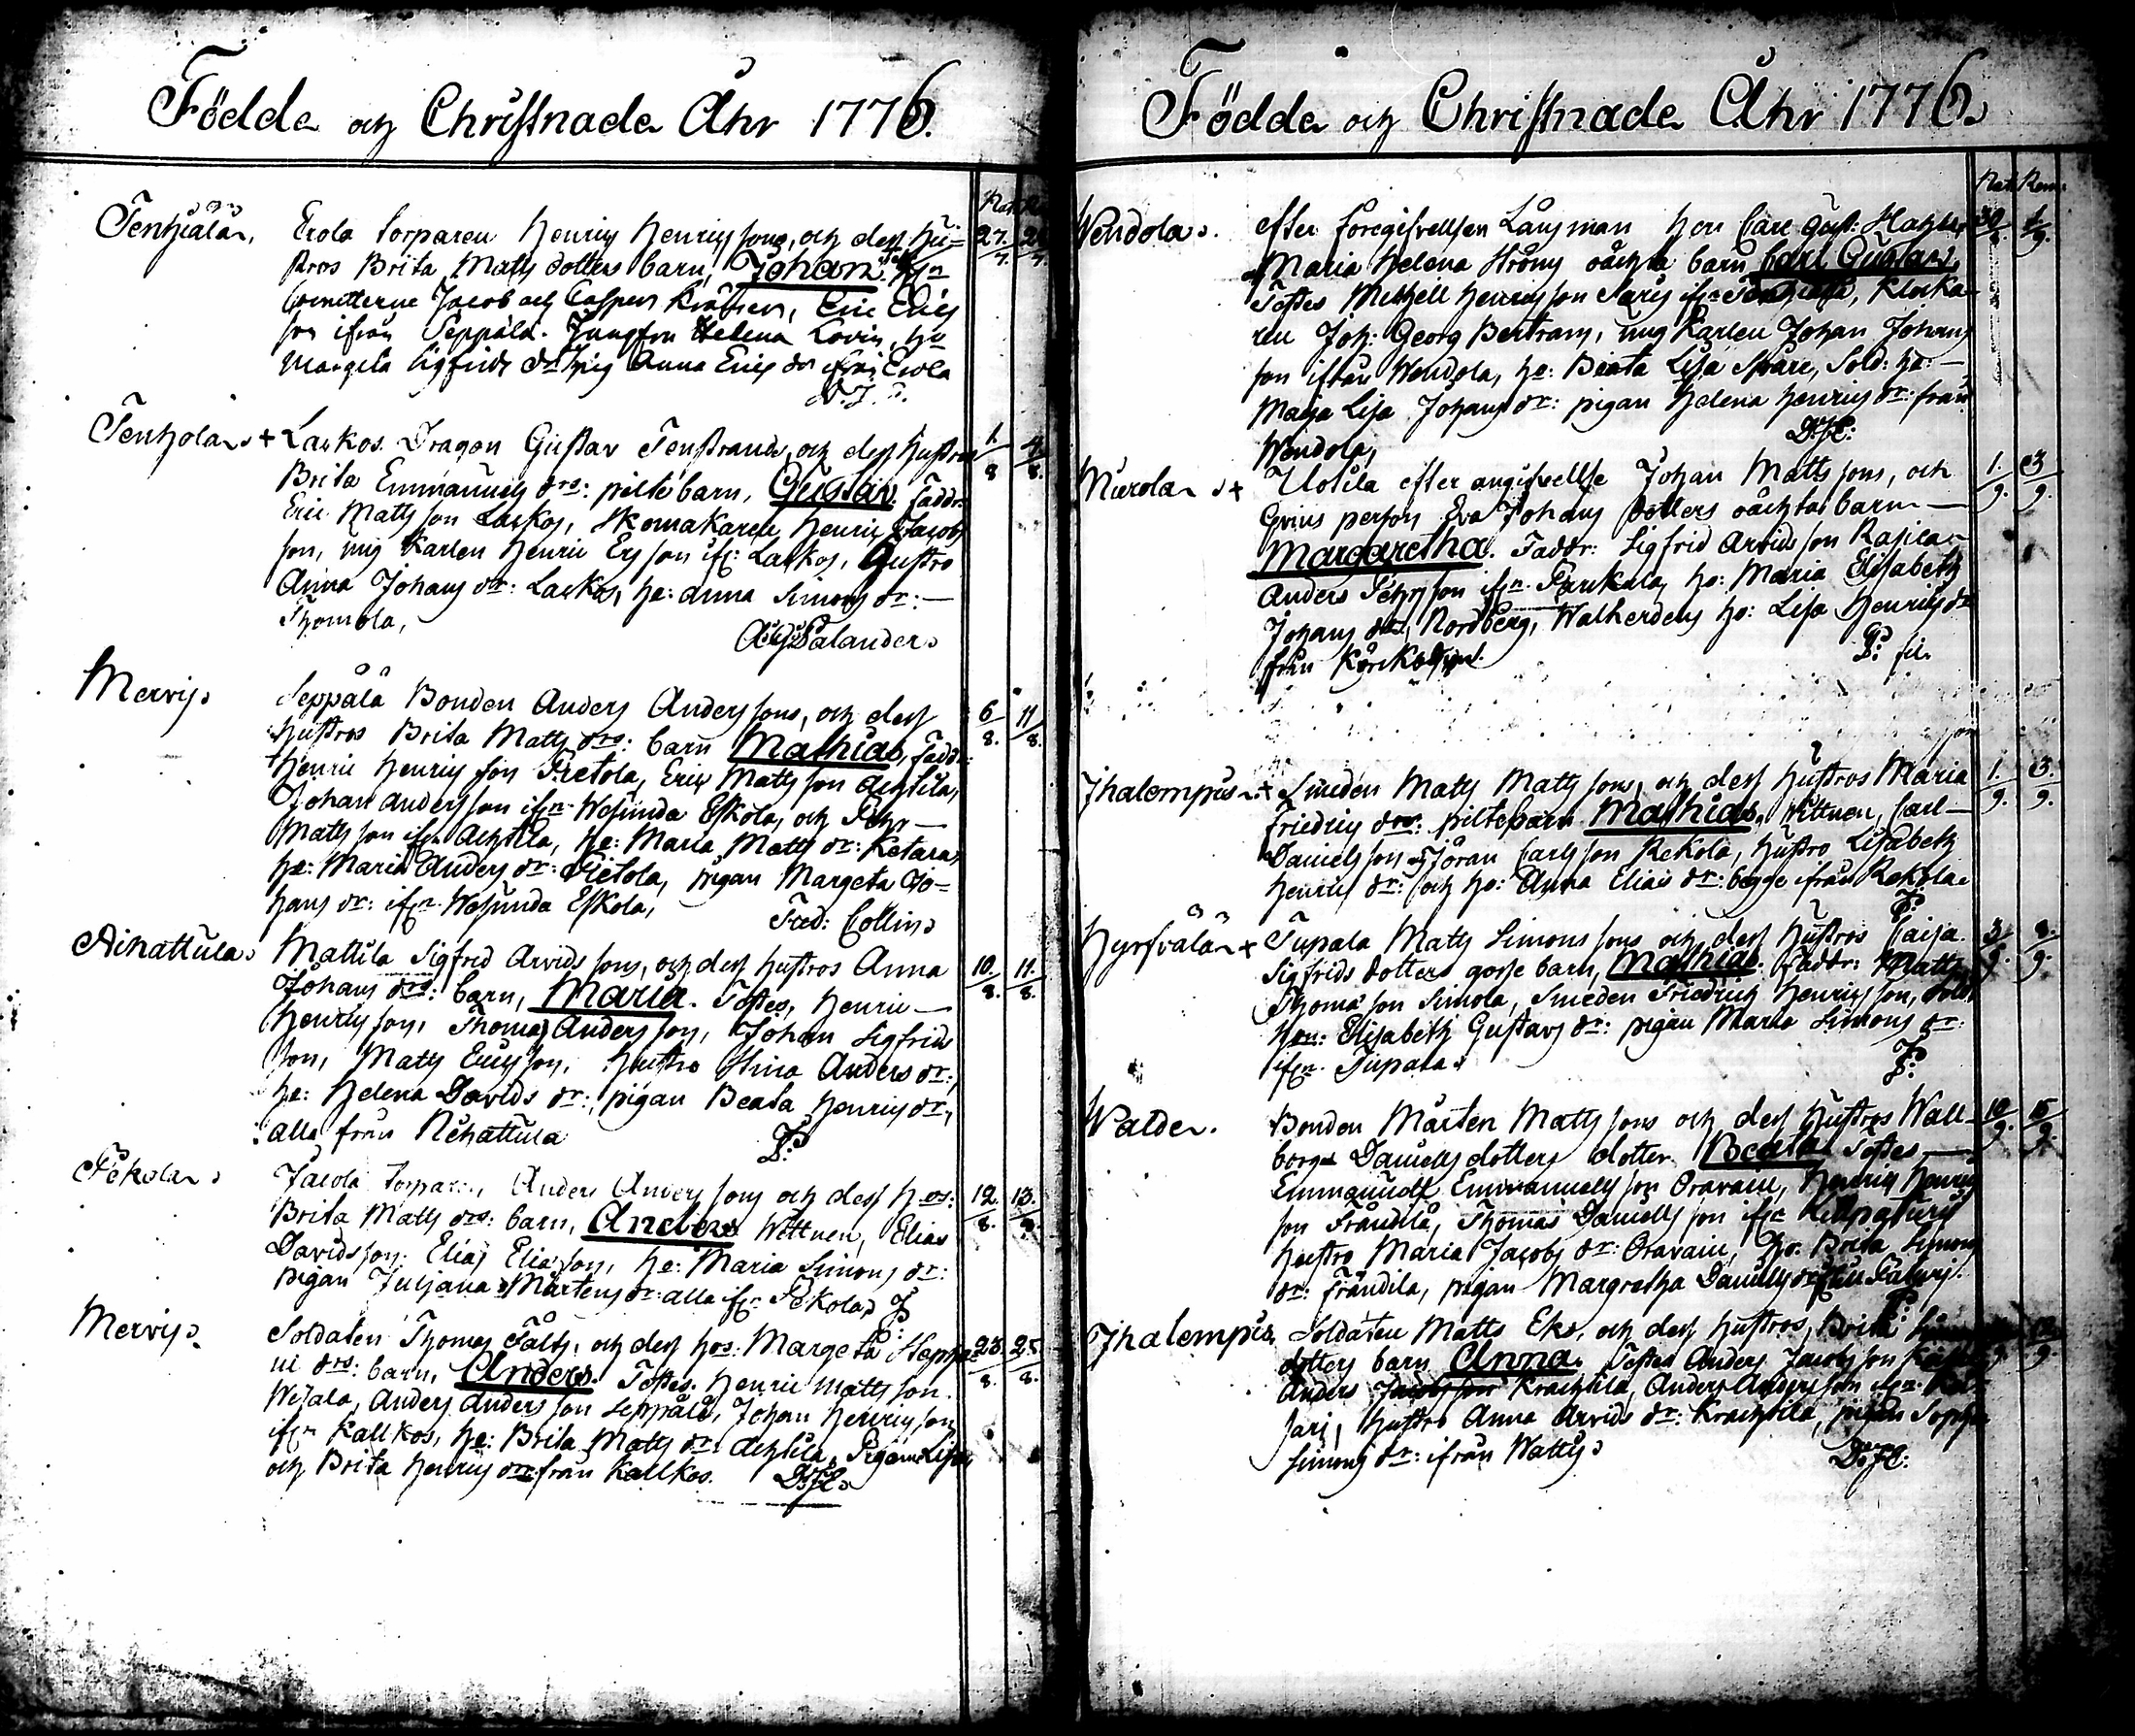 Födde och Christnade Åhr 1776.
Nat.
Tenhiälä. Erola torparen Henrich Henrichsons, och dess hu= 27. 28
7. 7.
stros Brita Matts dotters barn, Johan.
Cornetterne Jacob och Casper, Eric Erics
son ifrån Seppälä. Jungfru Helena Lovin, ho
Margeta Sigfrids dr pig Anna Erics dr ifrån Erola
Tenhola + Laskos. Dragon Gustav Tenstrands, och dess hustros 1. 4.
8 8.
Brita Emmanuels drs: piltebarn, Gustav. Faddr:
Eric Matts son Laskos, Skomakaren Henric Jacobs
son, ung Karlen Henric Ers son ifr: Laskos, Hustro
Anna Johans dr: Laskos, ho: Anna Simons dr:
Thomola,
Salander
Mervis Seppälä Bonden Anders Anderssons, och dess 6 11
8. 8.
hustros Brita Matts drs: barn Mathias, Faddr:
Henric Henrics son Pietola, Eric Matts son Achtila,
Johan Andersson ifrn Wesunda Eskola, och Pehr
Matts son ifrn Achtila, ho: Maria Matts dr: Ketara,
ho: Maria Anders dr: Pietola, pigan Margeta Jo=
hans dr: ifrn Wesunda Eskola, Fred: Collin
Aihattula Mattila Sigfred Arvids sons, och dess hustros Anna 10. 11.
8. 8.
Johans drs: barn, Maria. Testes, Henric
Henrics son, Thomas Anders son, Johan Sigfrids
son, Matts Erics son, hustro Stina Anders dr:
ho: Helena Davids dr:, pigan Beata Henrics dr,
alla från Aihattula
Pekola Jacola torparen, Anders Anders sons och dess hos: 12. 13.
8. 8.
Brita Matts drs: barn, Anders Wittnen, Elias
Davidsson, Elias Eliasson, ho: Maria Simons dr:
pigan Juliana Mårtens dr: alla ifrn Pekola,
Mervis Soldaten Thomas Fält, och dess hos: Margeta Stepha 23. 25.
8. 8.
ni drs: barn, Anders. Testes. Henric Matts son
Wesala, Anders Anders son Seppälä, Johan Henrics son
ifrn Kallkos, ho: Brita Matts dr: Achtila, Pigan Lisa
och Brita Henrics dr: från Kallkos.
Födde och Christnade Åhr 1776.
Nat. Ren.
Wendola efter föregifvellsen Länsman Herr Carl Gust: 30 1
9.
Maria Helena oächta barn Carl Gustav,
Testes Michell Henrics son, Klocka
ren Joh: Georg Bertram, ung Karlen Johan Johans
son ifrån Wendola, ho: Beata Lisa Spåre, Sold: ho:
Maja Lisa Johans dr: pigan Helena Henrics dr: från
Wendola,
Murola + Uotila efter angifvellse Johan Matts sons, och 1. 3
9. 9.
Qvins person Eva Johans dotters oächta barn
Margaretha. Faddr: Sigfrid Arvids son
Anders Pehrs son ifrn Parikala, ho: Maria Elisabeth
Johans dr, Nordberg, ho: Lisa Henrics dr
från
Ihalempis + Smeden Matts Matts sons, och dess hustros Maria 1. 3.
9. 9.
Friedrics drs: piltebarn Mathias, Wittnen, Carl
Daniels son, Jöran Carls son Rekola, hustro Lisabeth
Henrics dr: och ho: Anna Elias dr: begge ifrån Rekola
Hyrfvälä + Tupala Matts Simons sons och dess hustros Caisa 3. 8.
9. 9.
Sigfrids dotters gosse barn, Mathias. Faddr: Matts
Thomas son Simola, Smeden Friedrich Henrics son, Sold
hon: Elisabeth Gustavs dr: pigan Maria Simons dr:
ifrn Tupala
Walde. Bonden Mårten Matts sons och dess hustros Wall 10 15
9. 9.
borgs Daniels dotters dotter, Beata Testes
Emmanuel Emmanuels son Oravain, Henrich Henrics
son Frändilä, Thomas Daniels son ifrn
hustro Maria Jacobs dr: Oravain, ho. Brita Simons
dr: Frändila, pigan Margretha Daniels dr
Ihalempis Soldaten Matts Ek, och dess hustros, Brita
9.
dotters barn Anna. Testes Anders Jacobs son
Anders Krachtila, Anders Anders son ifrn
Jari, hustro Anna Arvids dr: Krachtila, pigan Sophia
Simons dr: ifrån Wattis